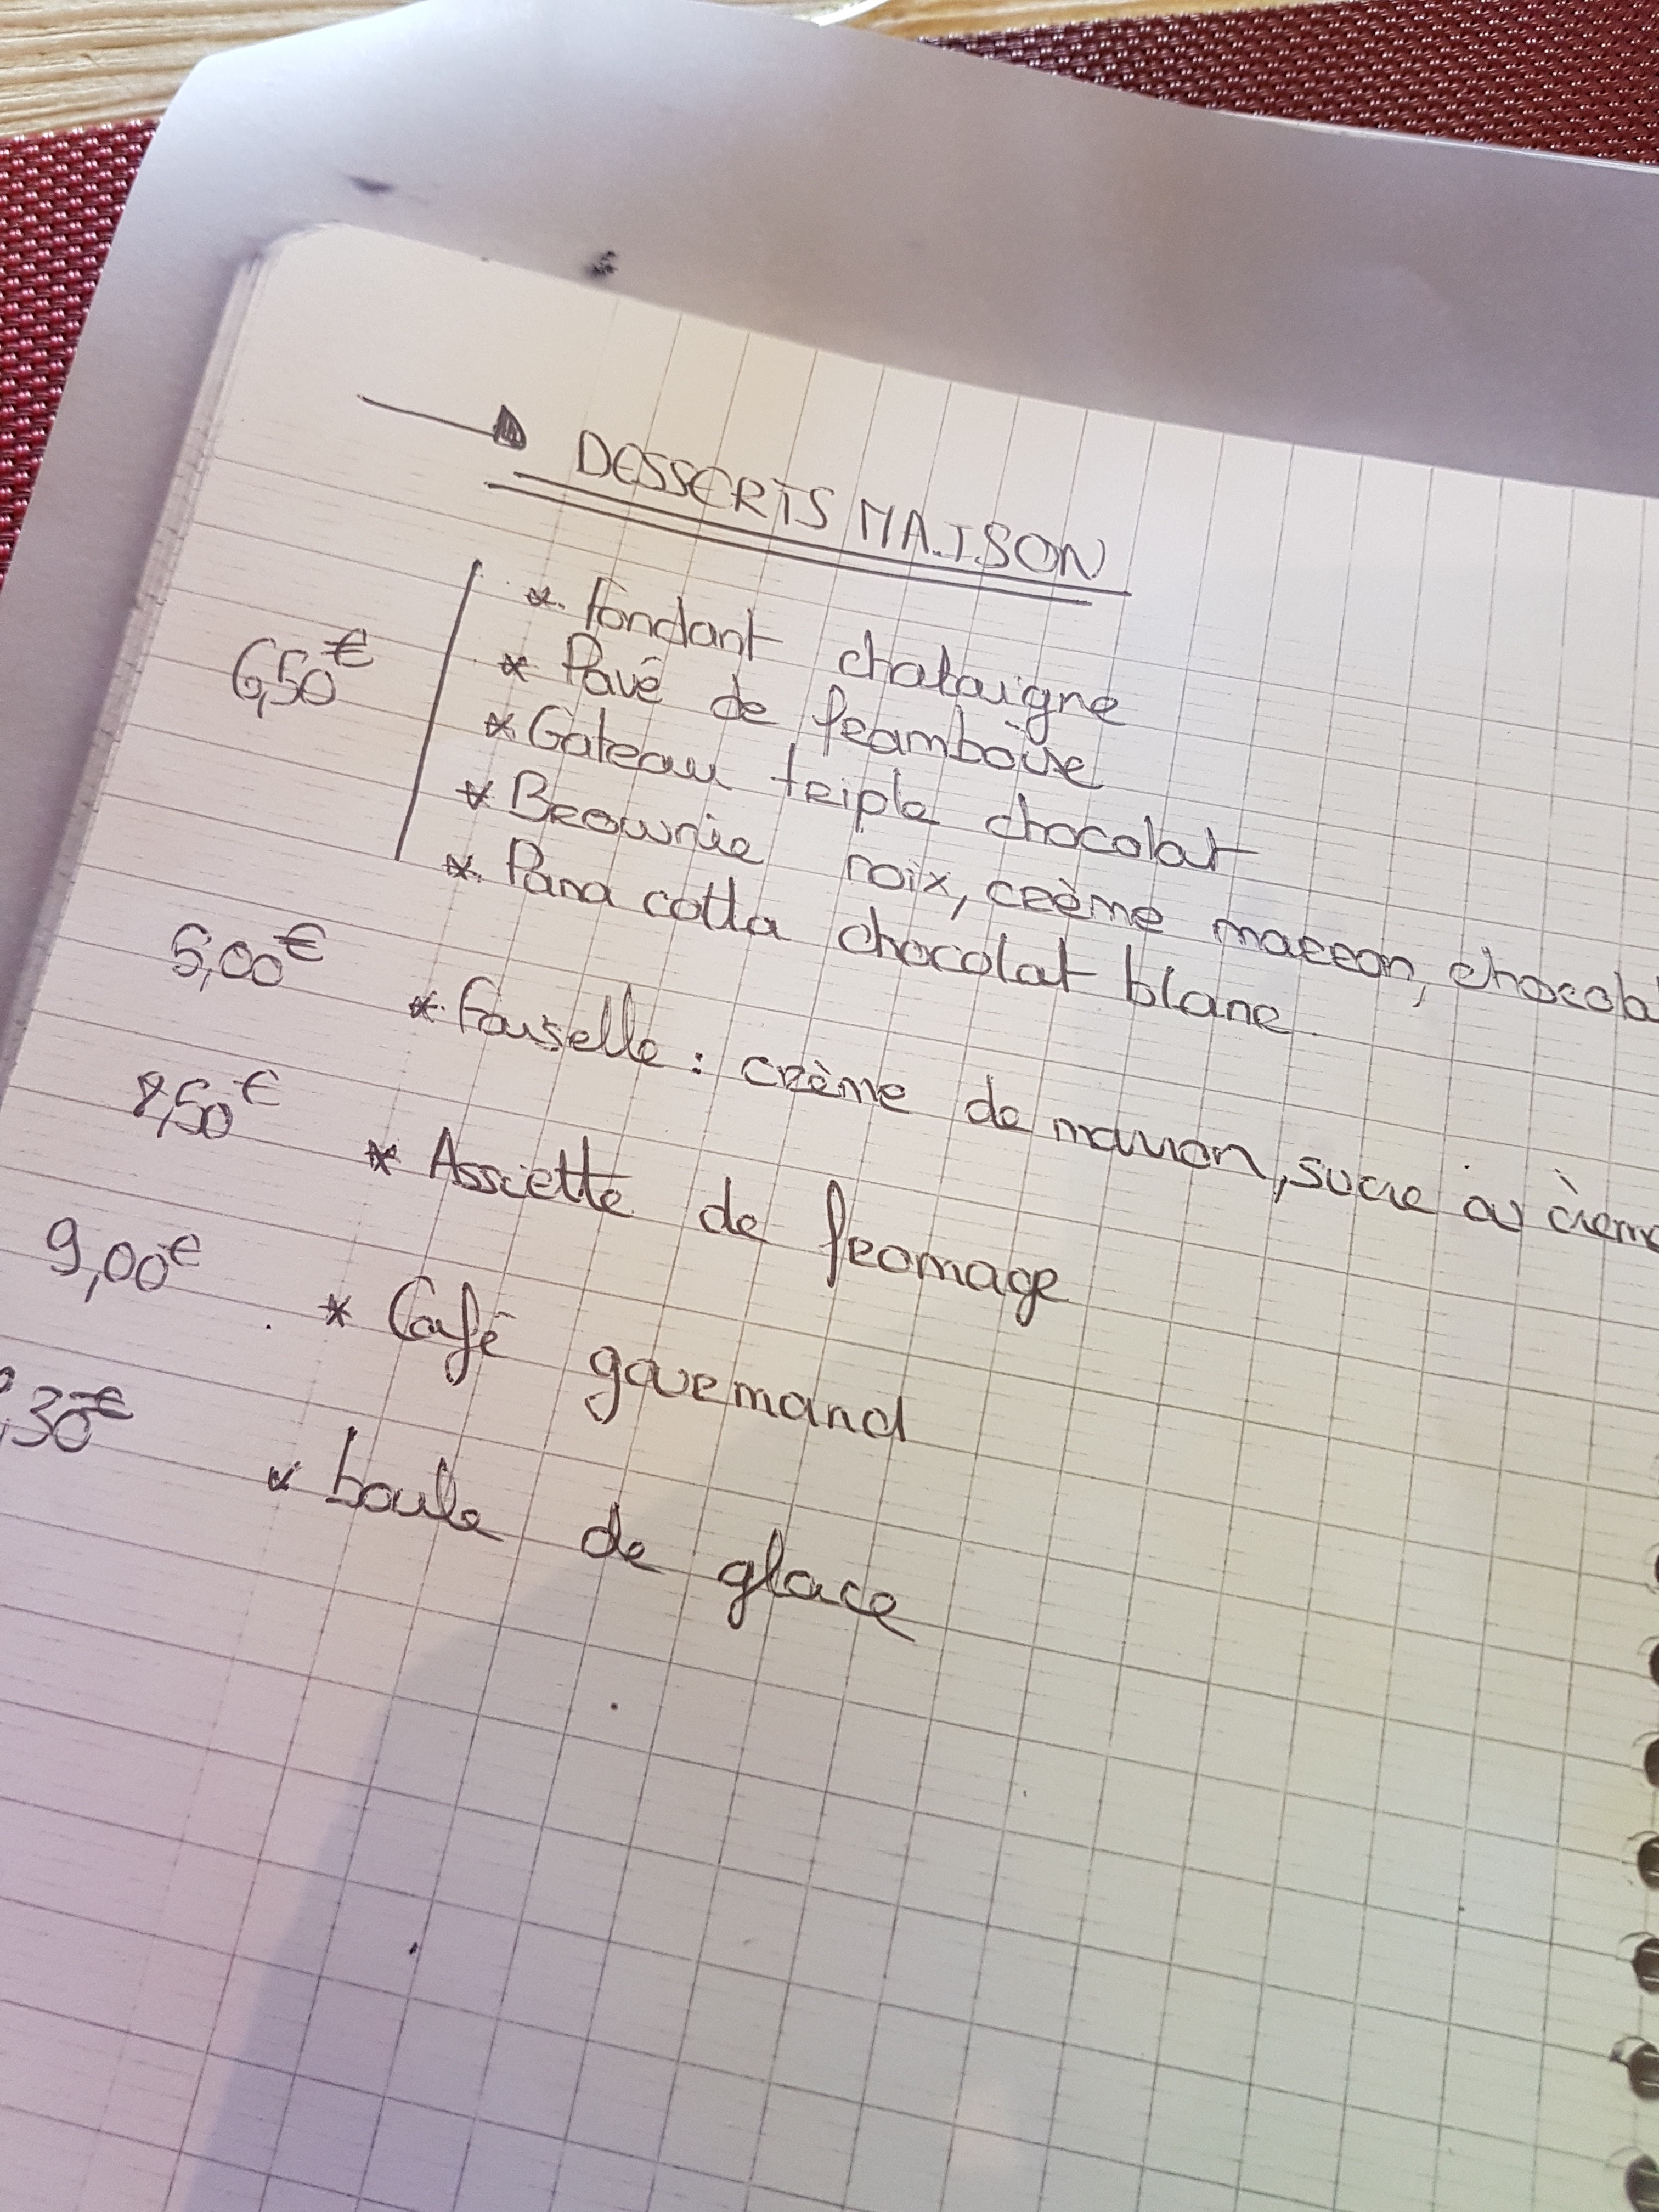 DESSERTS MAISON
6,50€
* Fondant chataigne
* Pavé de framboise
* Gateau triple chocolat
* Brownie noix, crème marron,
* Pana cotta chocolat blanc
5,00€ * Faiselle : crème de marron, sucre ou
€ * Assiette de fromage
9,00€ * Café gourmand
,30€ * boule de glace